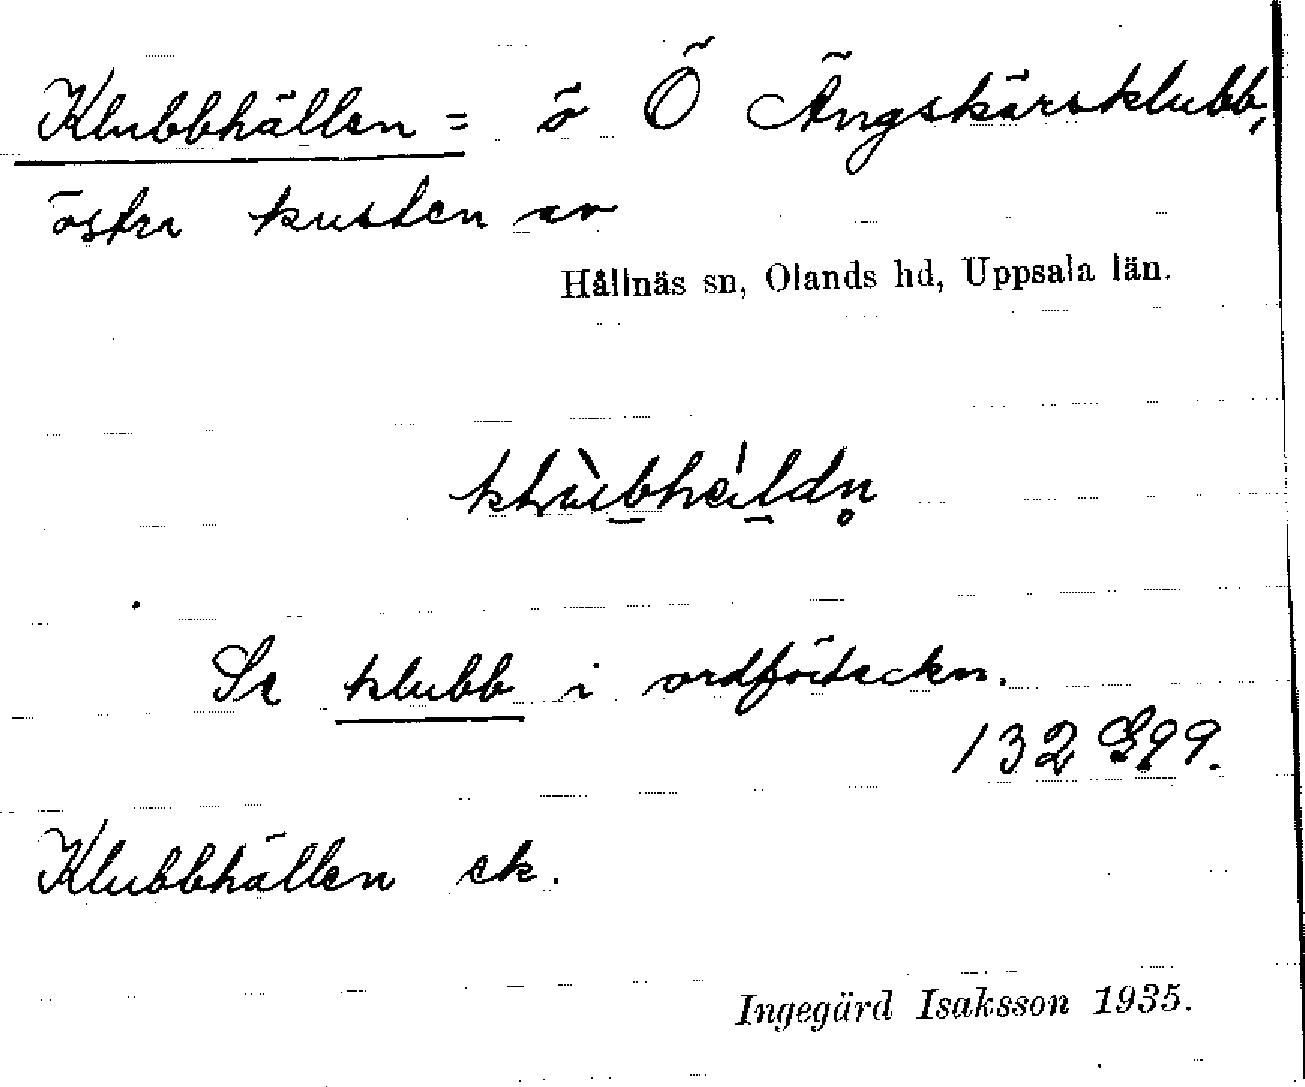 Klubbhällen = ö Ö Ängskärsklubb,
östra kusten av
Hållnäs sn, Olands hd, Uppsala län.
Se klubb i ordförteckn.
132 G99.
Klubbhällen ek.
Ingegärd Isaksson 1935.